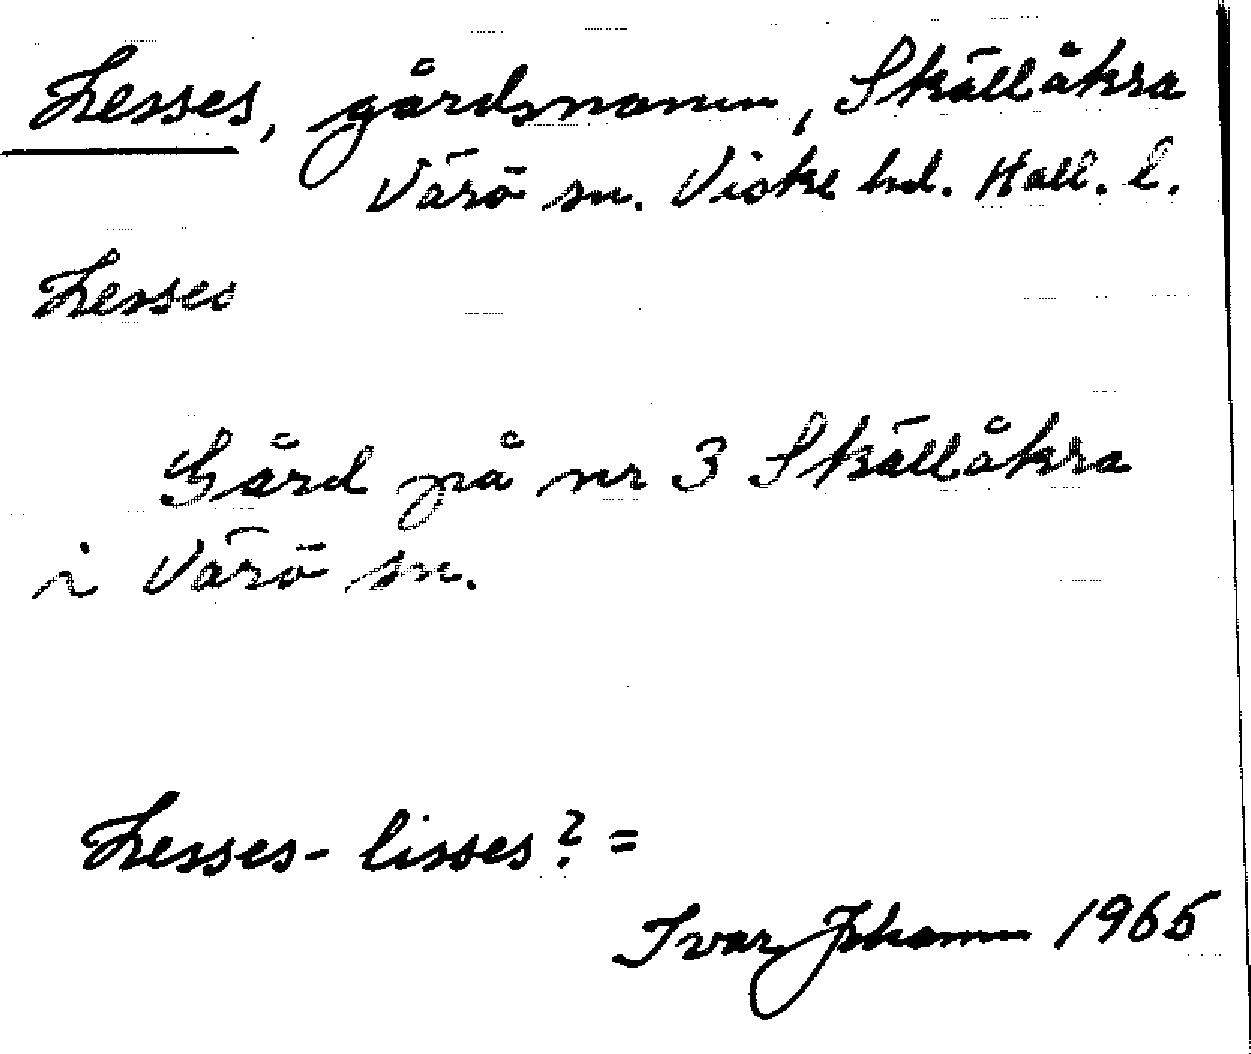 Lesses, gårdsnamn, Skällåkra
Värö sn. Viske hd. Hall. l.
Lesses
Gård på nr 3 Skällåkra
i Värö sn.
Lesses- lisses? =
Ivar Johansson 1965